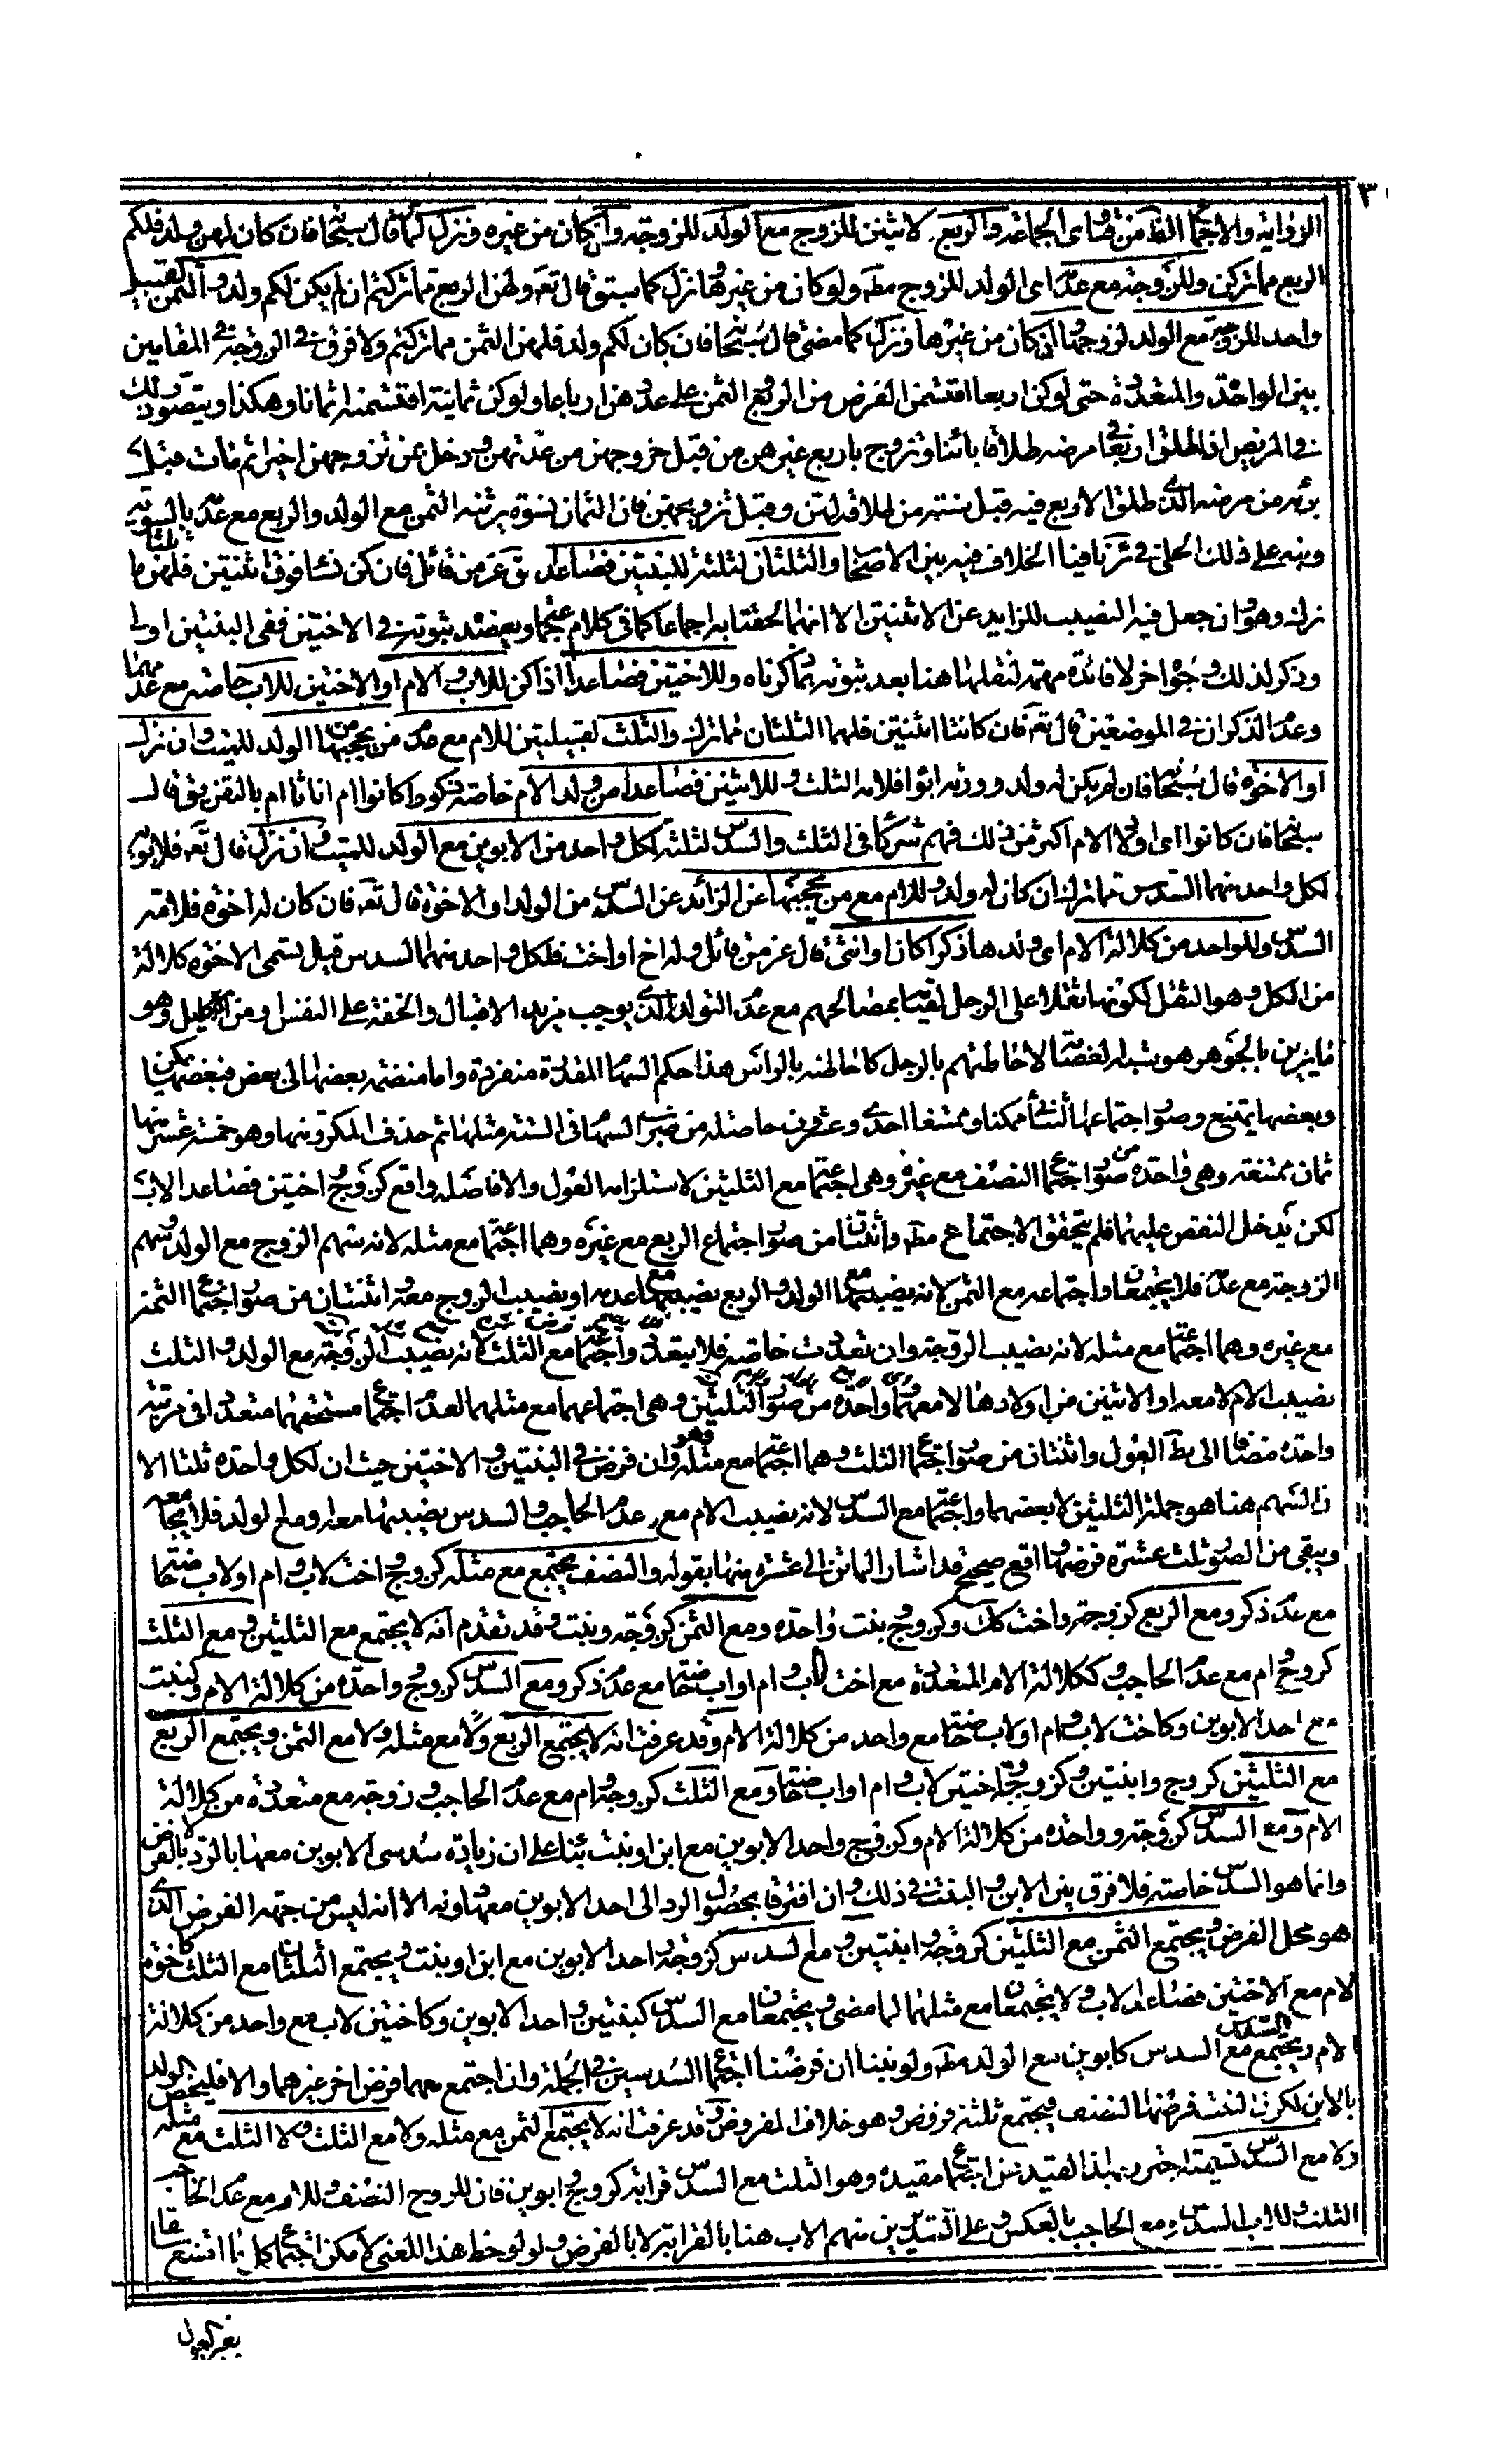 ٣
الرواية والاجماع الظ من فتاوى الجماعة والربع لاثنين للزوج مع الولد للزوجة وان كان من غيره ونزل كما قال سبحانه فان كان لهن ولد فلكم
الربع مما تركن وللزوجة مع عدمه اى الولد للزوج مطه ولو كان من غيرها ونزل كما سبق قال تعه ولهن الربع مما تركتم ان لم يكن لكم ولد والثمن لقبيل
واحد للزوجة مع الولد لزوجها ان كان من غيرها ونزل كما مضى قال سبحانه فان كان لكم ولد فلهن الثمن مما تركتم ولا فرق فى الزوجة فى المقامين
بين الواحدة والمتعددة حتى لو كن اربعا اقتسمن الفرض من الربع والثمن على عددهن ارباعا ولو كن ثمانية اقتسمنه اثمانا وهكذا ويتصور ذلك
فى المريض اذا طلق اربعا فى مرضه طلاقا بائنا وتزوج باربع غيرهن من قبل خروجهن من عدتهن ودخل عن تزوجهن اخيرا ثم مات قبل
برئه من مرضه الذى طلق الاربع فيه قبل سنة من طلاقه لهن وقبل تزويجهن فان الثمان نسوة يرثنه الثمن مع الولد والربع مع عدمه بالسوية
ونبه على ذلك الحلى فى ئر نافيا الخلاف فيه بين الاصحاب والثلثان لثلثة للبنتين فصاعدا قال عز من قائل فان كن نساء فوق اثنتين فلهن ثلثا ما
ترك وهو وان جعل فيه النصيب للزايد عن الاثنتين الا انهما لحقتا به اجماعا كما فى كلام جماعة ويعضده ثبوته فى الاختين ففى البنتين اولى
وذكر لذلك وجوه اخر لا فائدة مهمة لنقلها هنا بعد ثبوته بما ذكرناه وللاختين فصاعدا اذا كن للاب والام او الاختين للاب خاصة مع عدمهما
وعدم الذكران فى الموضعين قال تعه فان كانتا اثنتين فلهما الثلثان مما ترك والثلث لقبيلتين للام مع عدم من يحجبها من الولد للميت وان نزل
او الاخوة قال سبحانه فان لم يكن له ولد وورثه ابواه فلامه الثلث وللاثنين فصاعدا من ولد الام خاصة ذكورا كانوا ام اناثا ام بالتفريق قال
سبحانه فان كانوا اى اولاد الام اكثر من ذلك فهم شركاء فى الثلث والسدس لثلثة لكل واحد من الابوين مع الولد للميت وان نزل قال تعه فلابويه
لكل واحد منهما السدس مما ترك ان كان له ولد وللام مع من يحجبها عن الزائد عن السدس من الولد او الاخوة قال تعه فان كان له اخوة فلامه
السدس وللواحد من كلالة الام اى ولدها ذكرا كان او انثى قال عز من قائل وله اخ او اخت فلكل واحد منهما السدس قيل تسمى الاخوة كلالة
من الكل وهو الثقل لكونها ثقلا على الرجل لقيامه بمصالحهم مع عدم التولد الذى يوجب مزيد الاقبال والخفة على النفس او من الاكليل وهو
ما يزين بالجوهر هو شبه العصابة لاحاطتهم بالرجل كاحاطته بالراس هذا حكم السهام المقدرة منفردة واما منضمة بعضها الى بعض فبعضها يمكن
وبعضها يمتنع وصور اجتماعها الثنائى ممكنا وممتنعا احدى وعشرون حاصلة من ضرب السهام فى الستة مثلها ثم حذف المكرر منها وهو خمسة عشر منها
ثمان ممتنعة وهى واحدة من صور اجتماع النصف مع غيره وهى اجتماعه مع الثلثين لاستلزامه العول والا فاصله واقع كزوج واختين فصاعدا لاب
لكن يدخل النقص عليهما فلم يتحقق الاجتماع مطه واثنتان من صور اجتماع الربع مع غيره وهما اجتماعه مع مثله لانه سهم الزوج مع الولد وسهم
الزوجة مع عدمه فلا يجتمعان واجتماعه مع الثمن لانه نصيبها مع الولد والربع نصيبها مع عدمه او نصيب الزوج معه واثنتان من صور اجتماع الثمن
مع غيره وهما اجتماعه مع مثله لانه نصيب الزوجة وان تعددت خاصة فلا يتعدد واجتماعه مع الثلث لانه نصيب الزوجة مع الولد والثلث
نصيب الام لا معه او الاثنين من اولادها لا معهما وواحدة من صور الثلثين وهى اجتماعهما مع مثلهما لعدم اجتماع مستحقهما متعددا فى مرتبة
واحدة مضافا الى بط العول واثنتان من صور اجتماع الثلث وهما اجتماعه مع مثله وهو وان فرض فى البنتين والاختين حيث ان لكل واحدة ثلثا الا
ان السهم هنا هو جملة الثلثين لا بعضهما واجتماعه مع السدس لانه نصيب الام مع عدم الحاجب والسدس نصيبها معه او مع الولد فلا يجامعه
ويبقى من الصور ثلث عشرة فرضها واقع صحيح قد اشار الماتن الى عشرة منها بقوله والنصف يجتمع مع مثله كزوج واخت لاب وام او لاب خاصة
مع عدم ذكر ومع الربع كزوجة واخت كك وكزوج وبنت واحدة ومع الثمن كزوجة وبنت وقد تقدم انه لا يجتمع مع الثلثين ومع الثلث
كزوج وام مع عدم الحاجب وككلالة الام المتعددة مع اخت لاب وام او اب خاصة مع عدم ذكر ومع السدس كزوج وواحدة من كلالة الام وكبنت
مع احد الابوين وكاخت لاب وام او لاب خاصة مع واحد من كلالة الام وقد عرفت انه لا يجتمع الربع ولا مع مثله ولا مع الثمن ويجتمع الربع
مع الثلثين كزوج وابنتين وكزوجة واختين لاب وام او اب خاصة ومع الثلث كزوجة وام مع عدم الحاجب وزوجة مع متعددة من كلالة
الام ومع السدس كزوجة وواحدة من كلالة الام وكزوج واحد الابوين مع ابن او بنت بناء على ان زيادة سدسى الابوين معها بالرد لا بالفرض
وانما هو السدس خاصة فلا فرق بين الابن والبنت فى ذلك وان افترقا بحصول الرد الى احد الابوين معها دونه الا انه ليس من جهة الفرض الذى
هو محل الفرض ويجتمع الثمن مع الثلثين كزوجة وابنتين ومع السدس كزوجة واحد الابوين مع ابن او بنت ويجتمع الثلثان مع الثلث كاخوة
لام مع الاختين فصاعدا لاب ولا يجتمعان مع مثلهما لما مضى ويجتمعان مع السدس كبنتين واحد الابوين وكاختين لاب مع واحد من كلالة
لام ويجتمع السدس مع السدس كابوين مع الولد مطه ولو بنتا ان فرضنا اجتماع السدسين فى الجملة وان اجتمع معهما فرض اخر غيرهما والا فليخص الولد
بالابن لكون البنت فرضها النصف فيجتمع ثلثة فروض وهو خلاف المفروض وقد عرفت انه لا يجتمع الثمن مع مثله ولا مع الثلث ولا الثلث مع مثله
ولا مع السدس تسمية احترز بهذا القيد عن اجتماعه مقيده وهو الثلث مع السدس قرابة كزوج وابوين فان للزوج النصف وللام مع عدم الحاجب
الثلث وللاب السدس ومع الحاجب بالعكس وعلى التقديرين سهم الاب هنا بالقرابة لا بالفرض ولو لوحظ هذا المعنى لامكن اجتماع كل ما امتنع سابقا
بغير العول